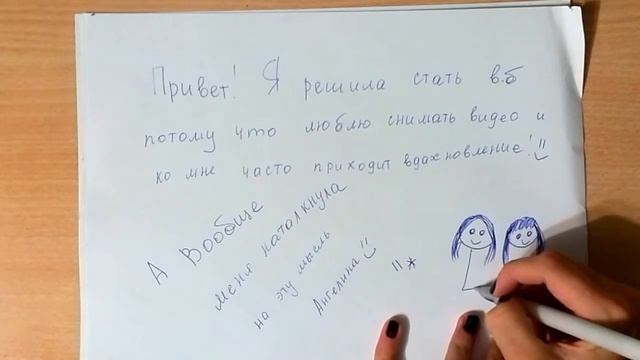 Привет! Я решила стать в.б
потому что люблю снимать видео и
ко мне часто приходит вдахновление! =)
А вообще
меня наталкнула
на эту мысль
Ангелина =)
"*